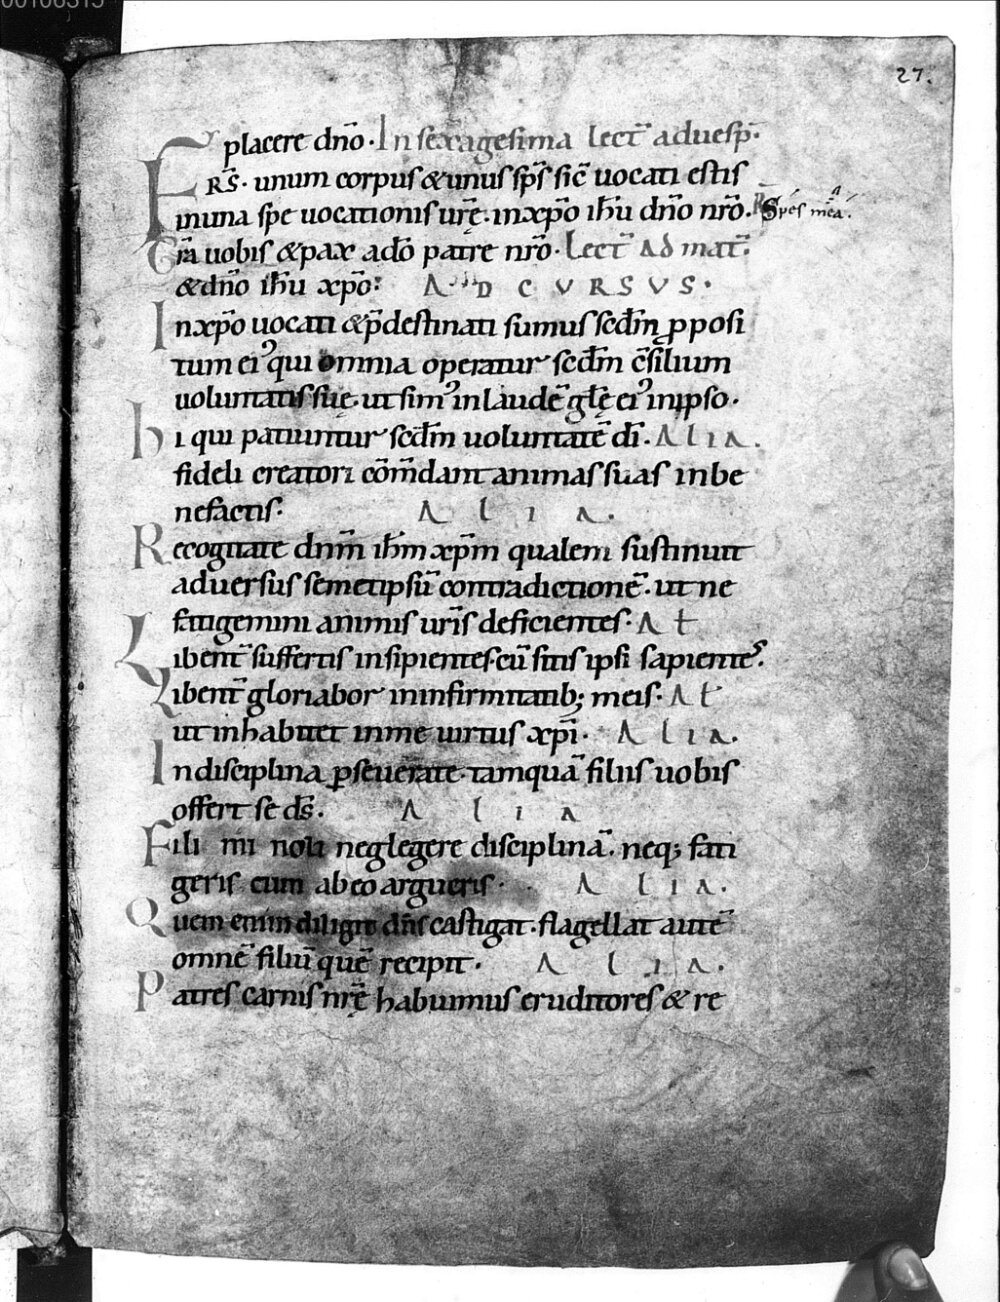 00106315
27.
placere dn̄o · In sexagesima lect̄ ad uesp̄.
FRS̄ · unum corpus & unus sp̄s sic̄ uocati estis
in una spe uocationis ur̄ę · in xp̄o ih̄u dn̄o nr̄o. R̄ Spes mēa.
Gr̄a uobis & pax a dō patre nr̄o · Lect̄ ad mat̄.
& dn̄o ih̄u xp̄o: A D C V R S V S.
In xp̄o uocati & p̄destinati sumus scdm̄ ꝓposi
tum eiꝰ qui omnia operatur scdm̄ cōsilium
uoluntatis suę. ut simꝰ in laudē gl̄ę eiꝰ in ipso.
hi qui patiuntur scdm̄ uoluntatē dī. A l i a.
fideli creatori cōm̄dant animas suas in be
nefactis: A l i a.
Recogitate dnm̄ ih̄m xp̄m qualem sustinuit
aduersus semetipsū contradictionē. ut ne
fatigemini animis ur̄is deficientes. A t
Libent̄ suffertis insipientes. cū sitis ipsi sapientes.
Libent̄ gloriabor in infirmitatib; meis. A t
ut inhabitet in me uirtus xp̄i. A l i a.
In disciplina ꝑseuerate. tamquā filiis uobis
offert se ds̄. A l i a
Fili mi noli neglegere disciplinā. neq; fati
geris cum ab eo argueris. A l i a.
Quem enim diligit dn̄s castigat. flagellat autē
omnē filiū quē recipit. A l i a.
Patres carnis nr̄ę habuimus eruditores & re